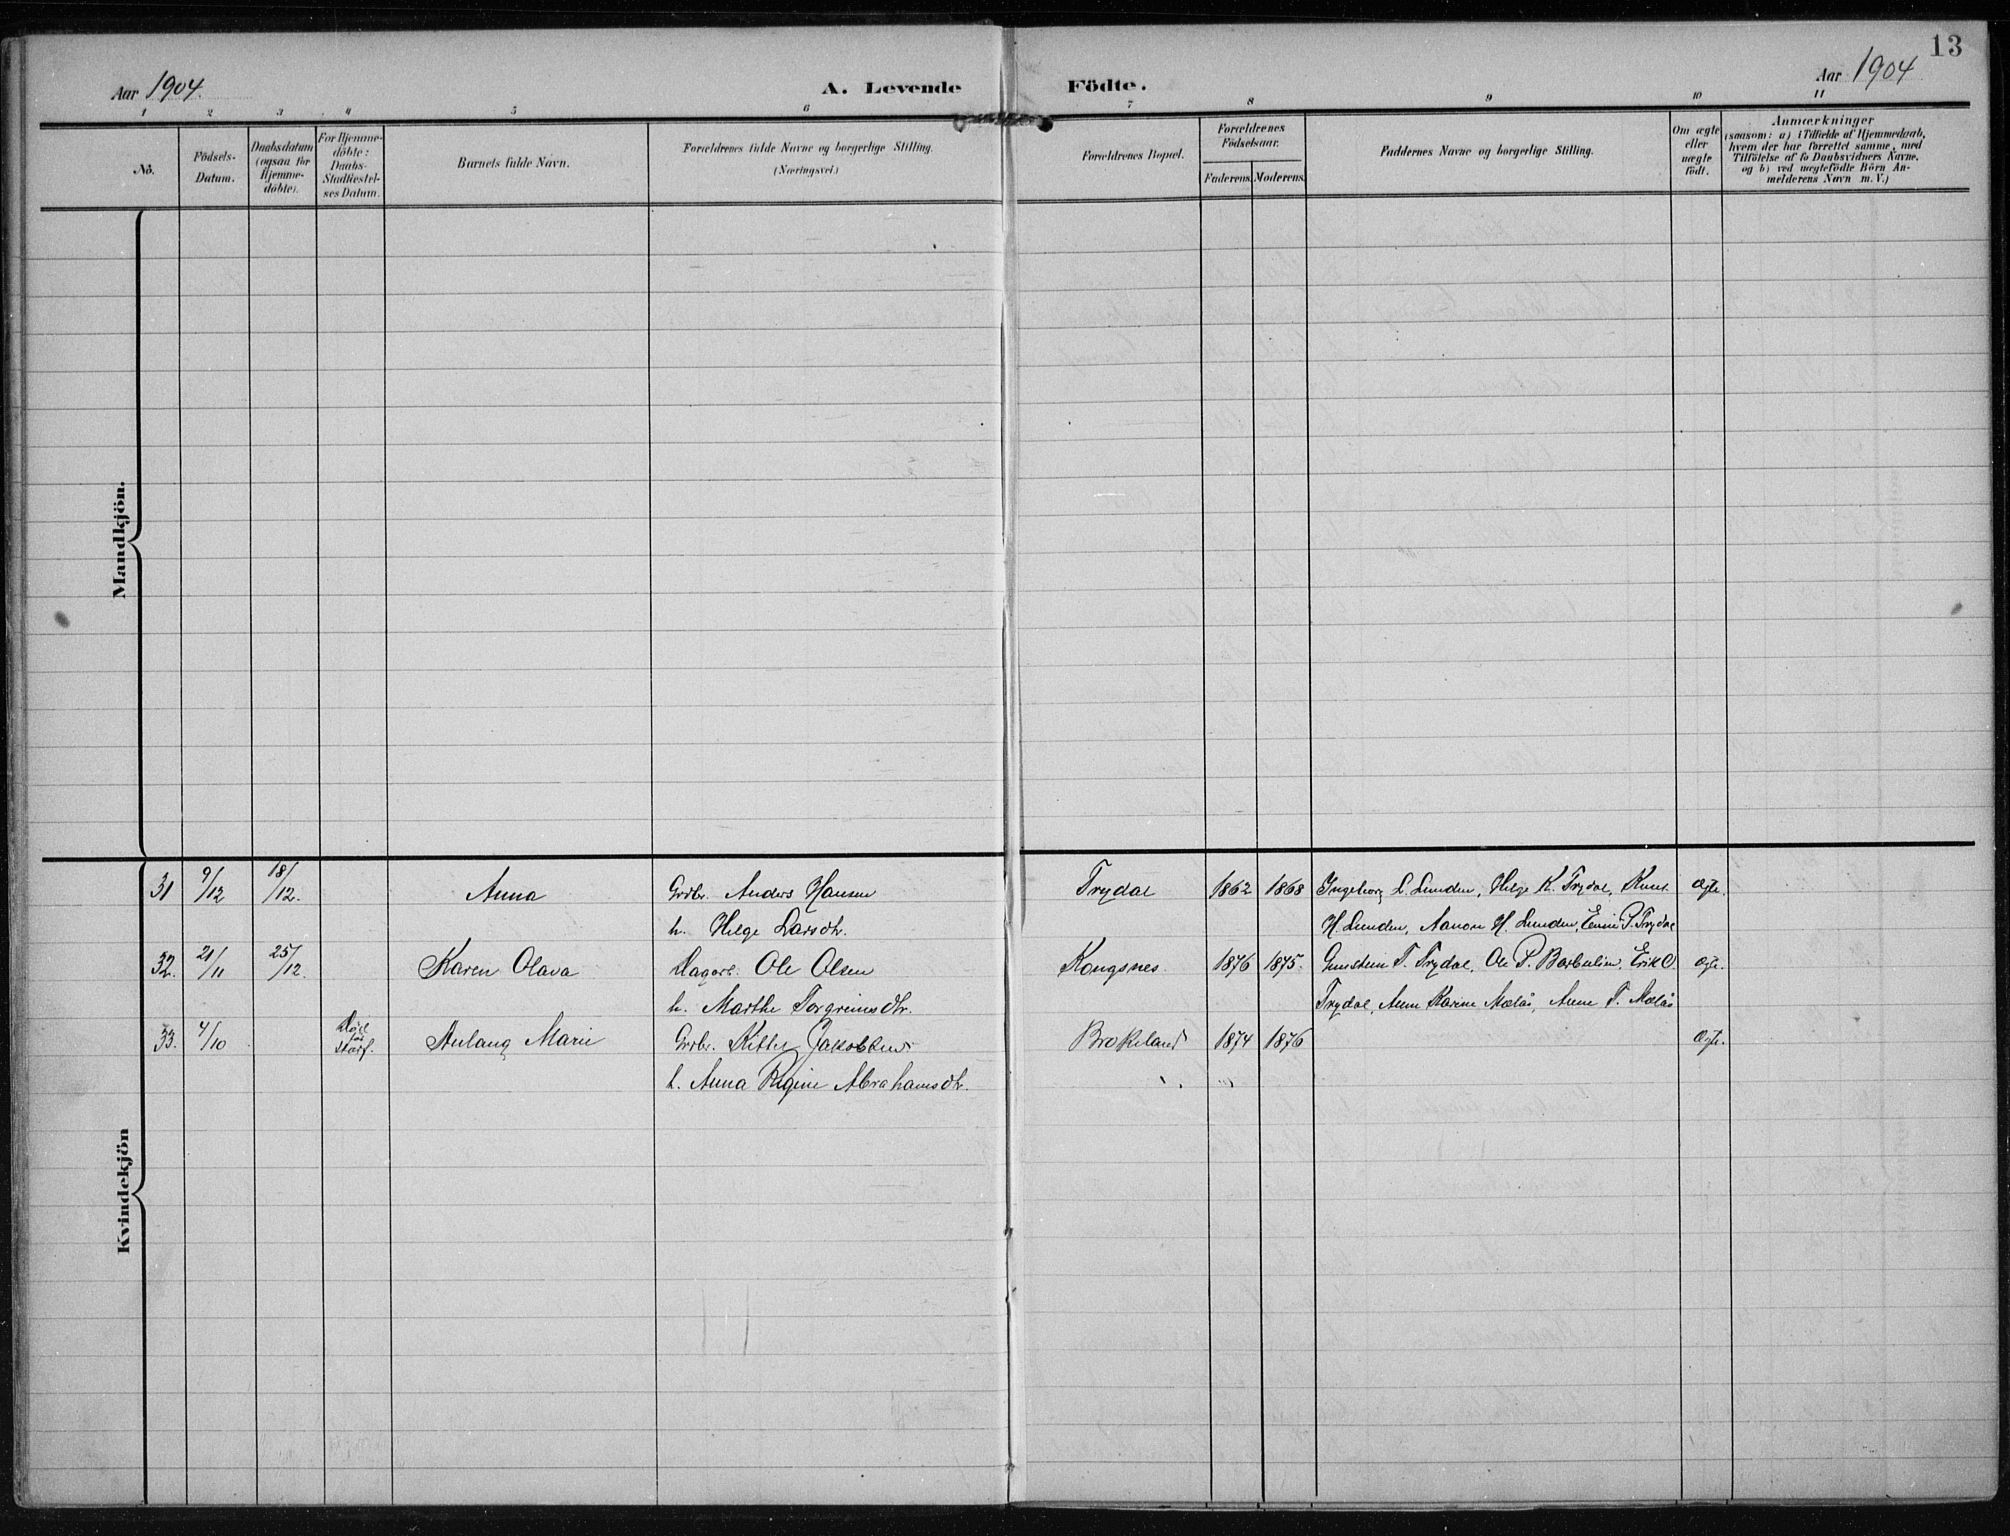 13
Aar 1904.
A. Levende Födte.
Aar 1904
1 2 3 4 5 6 7 8 9 10 11
No.
Födsels-
Datum.
Daabsdatum
(ogsaa for
Hjemme-
döbte).
For Hjemme-
döbte:
Daabs-
Stadfæstel-
ses Datum.
Barnets fulde Navn.
Forældrenes fulde Navne og borgerlige Stilling.
(Næringsvei.)
Forældrenes Bopæl.
Forældrenes
Födselsaar.
Faderens. Moderens.
Faddernes Navne og borgerlige Stilling.
Om ægte
eller
uægte
födt.
Anmærkninger
(saasom: a) i Tilfælde af Hjemmedaab,
hvem der har forrettet samme, med
Tilföielse af to Daabsvidners Navne,
og b) ved uægtefödte Börn An-
melderens Navn m. V.)
Mandkjön.
Kvindekjön
31 9/12 18/12. Anna Grdbr. Anders Hansen Trydal 1862 1868 Ingeborg L. Lunden, Helge K. Trydal, Knut Ægte.
h. Helge Larsdtr. H. Lunden, Aanon H. Lunden, P. Trydal
32. 21/11 25/12. Karen Olava Ole Olsen Kongsnes 1876 1875. T. Trydal, Ole P. Erik O. Ægte.
h. Marthe Torgrimsdtr. Trydal, Anne Karine Mælås, Anne T. Mælås
33. 4/10 Aulaug Marie Grdbr. Kittel Jakobsen Brokeland 1874 1876 Ægte.
h. Anna Regine Abrahamsdtr.